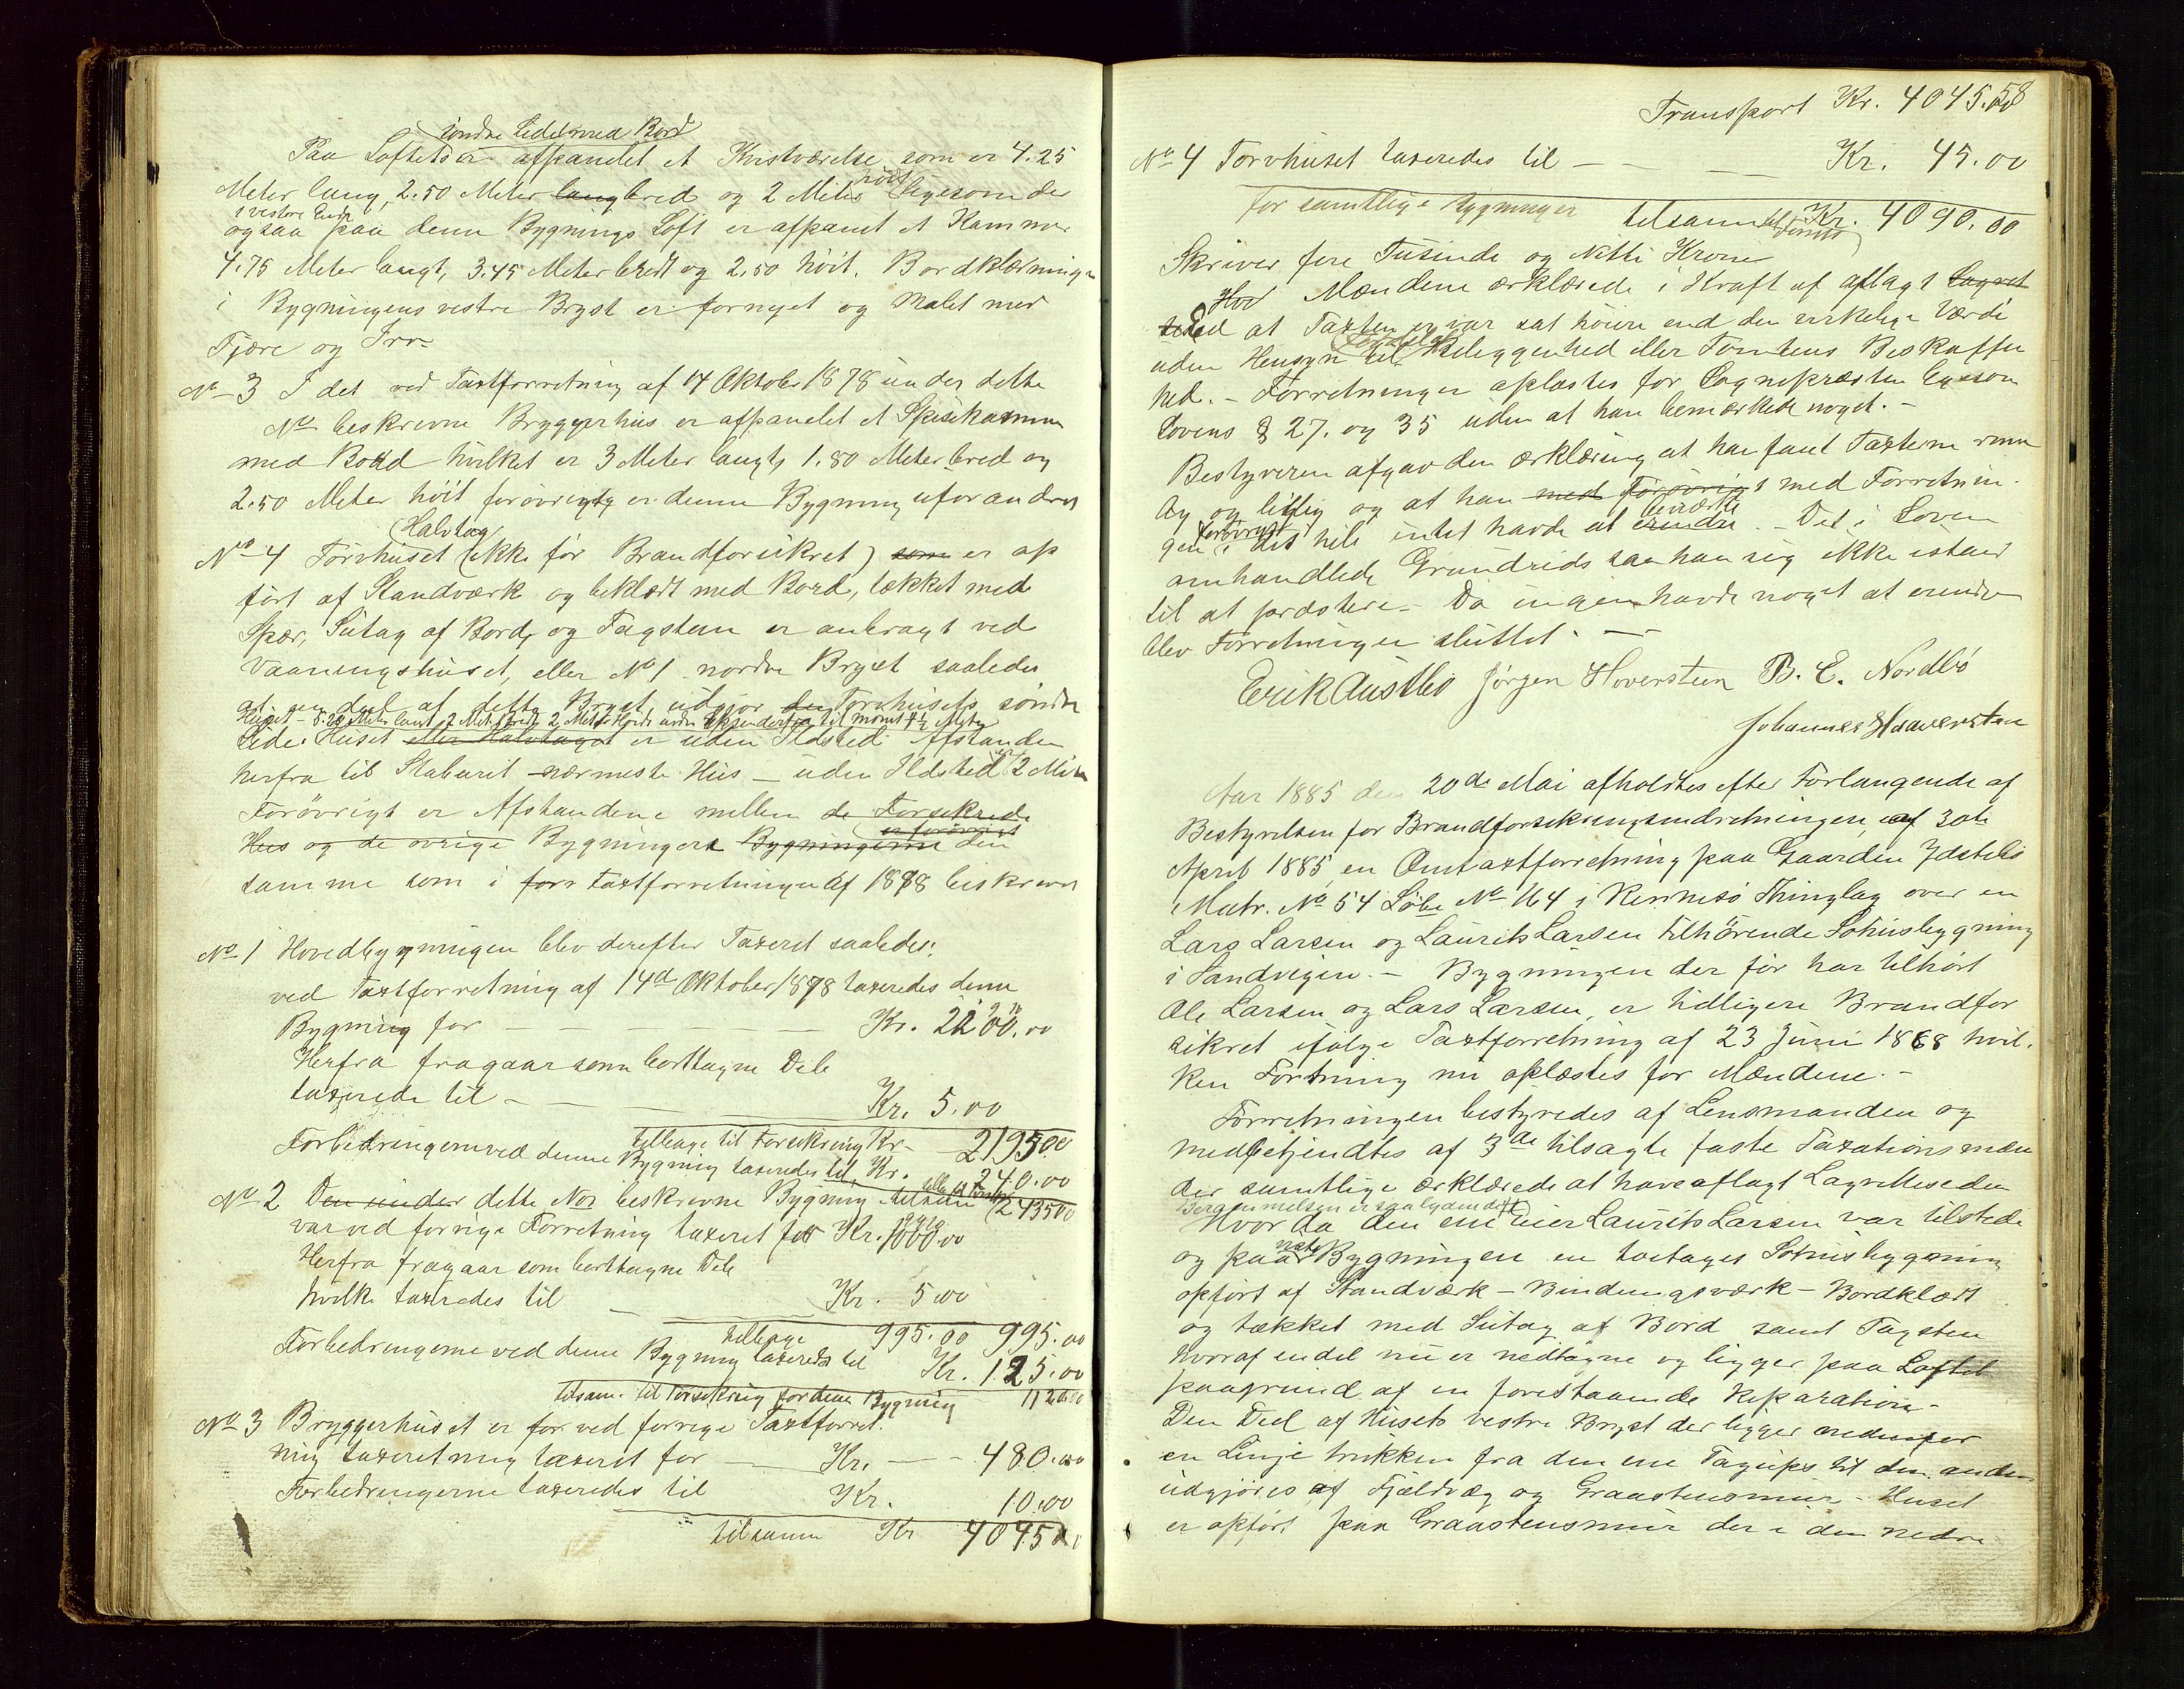 söndre Side med Bord
Paa Loftet er afpanelet et Kvistværelse som er 4.25
Meter lang, 2.50 Meter lang bred og 2 Meter höit ligesom der
i vestre Ende
ogsaa paa denne Bygnings Loft er afpanet et Kammer
4.75 Meter langt, 3.45 Meter bredt og 2.50 höit. Bordklædningen
i Bygningens vestre Bryst er fornyet og Malet med
Tjære og
No 3 I det ved Taxtforretning af 14 Oktober 1878 under dette
No beskrevne Bryggerhus er afpanelet et Spisekammer
med Bord hvilket er 3 Meter langt, 1.80 Meter bred og
2.50 Meter höit forövrigt er denne Bygning uforandret
Halvtag
No 4 Torvhuset (ikke för Brandforsikret) som er op
fört af Standværk og beklædt med Bord, tækket med
Spær, Sutag af Bord og Tagsteen er anbragt ved
Vaaningshuset, eller No 1 nordre Bryst saaledes
at en del af dette Bryst udgjör den Torvhusets söndre
Huset - 5.20 Meter langt 2 Meter bredt 2 Meter
Side. Huset eller Halvtaget er uden Ildsted Afstanden
herfra til Staburet nærmeste Hus - uden Ildsted er 2 Meter
Forövrigt er Afstandene mellem de Forsikrede
er forövrigt
Hus og de övrige Bygningers Bygningerne den
samme som i for Taxtforretningen af 1878 beskrevet
No 1 Hovedbygningen blev derefter Taxeret saaledes:
ved Taxtforretning af 14de Oktober 1878 taxeredes denne
Bygning for - Kr. 2200.00
Herfra fragaar som borttagne Dele
taxerede til - Kr. 5.00
tilbage til Forsikring Kr - 2195.00
Forbedringerne ved denne Bygning taxeredes til Kr. 240.00
No 2 Den under dette No beskrevne Bygning tilsam 2435.00
var ved forrige Forretning taxeret for Kr. 1000.00
Herfra fragaar som borttagne Dele
hvilke taxeredes til Kr. 5.00
tilbage 995.00 995.00
Forbedringerne ved denne Bygning taxeredes til Kr. 125.00
tilsam. til Forsikring for denne Bygning 1120.00
No 3 Bryggerhuset er for ved forrige Taxtforret.
ning taxeretning taxeret for - Kr. - 480.00
Forbedringerne taxeredes til Kr. 10.00
tilsamm Kr 4045.00
Transport Kr. 4045.58
No 4 Torvhuset taxeredes til - Kr. 45.00
for samtlige Bygninger tilsam Kr. 4090.00
Skriver fire Tusinde og Nitti Kroner
Hver Mændene erklærede i Kraft af aflagt Lagret
Eed at Taxten ey var sat höiere end den virkelige Værdi
uden Hensyn til Beleggenhed eller Tomtens Beskaffen
hed. - Forretningen oplæstes for Sognepræsten
Lovens § 27. og 35 uden at han bemærkede noget. -
Bestyreren afgav den erklæring at han fant Taxterne rime
lig og billig og at han med forövrigt med Forretnin.
gen forövrigt i det hele intet havde at bemærke erindre. - Det i Loven
omhandlede Grundrids saa han sig ikke istand
til at præstere. - Da ingen havde noget at erindre
blev Forretningen sluttet. -
Erik Austbö Jörgen Hoversteen B. E. Nordbö
Johannes Haaversten
Aar 1885 den 20de Mai afholdtes efter Forlangende af
Bestyrelsen for Brandforsikringsindretningen af 30te
April 1885 en Omtaxtforretning paa Gaarden Ydstebö
Matr. No 54 Löbe No 164 i Rennesö Thinglag over en
Lars Larsen og Laurits Larsen tilhörende Söhusbygning
i Sandvigen. - Bygningen der för har tilhört
Ole Larsen og Lars Larsen, er tidligere Brandfor
sikret ifölge Taxtforretning af 23 Juni 1868 hvil.
ken Forretning nu oplæstes for Mændene. -
Forretningen bestyredes af Lensmanden og
medbetjendtes af 3de tilsagte faste Taxationsmænd
der samtlige erklærede at have aflagt Lagretteseden
Berammelsen er saalydende
Hvor da den ene Eier Laurits Larsen var tilstede
og paaviste Bygningen en toetages Söhusbygning
opfört af Standværk - Bindingsværk - Bordklædt
og tækket med Sutag af Bord samt Tagsten
hvoraf endel nu er nedtagne og ligger paa Loftet
paagrund af en forestaaende Reparation -
Den Deel af Husets vestre Bryst der ligger nedenfor
en Linje trukken fra den ene Tagups til den anden
udgjöres af Fjeldvæg og Graastensmur. Huset
er opfört paa Graastensmur der i den nedre